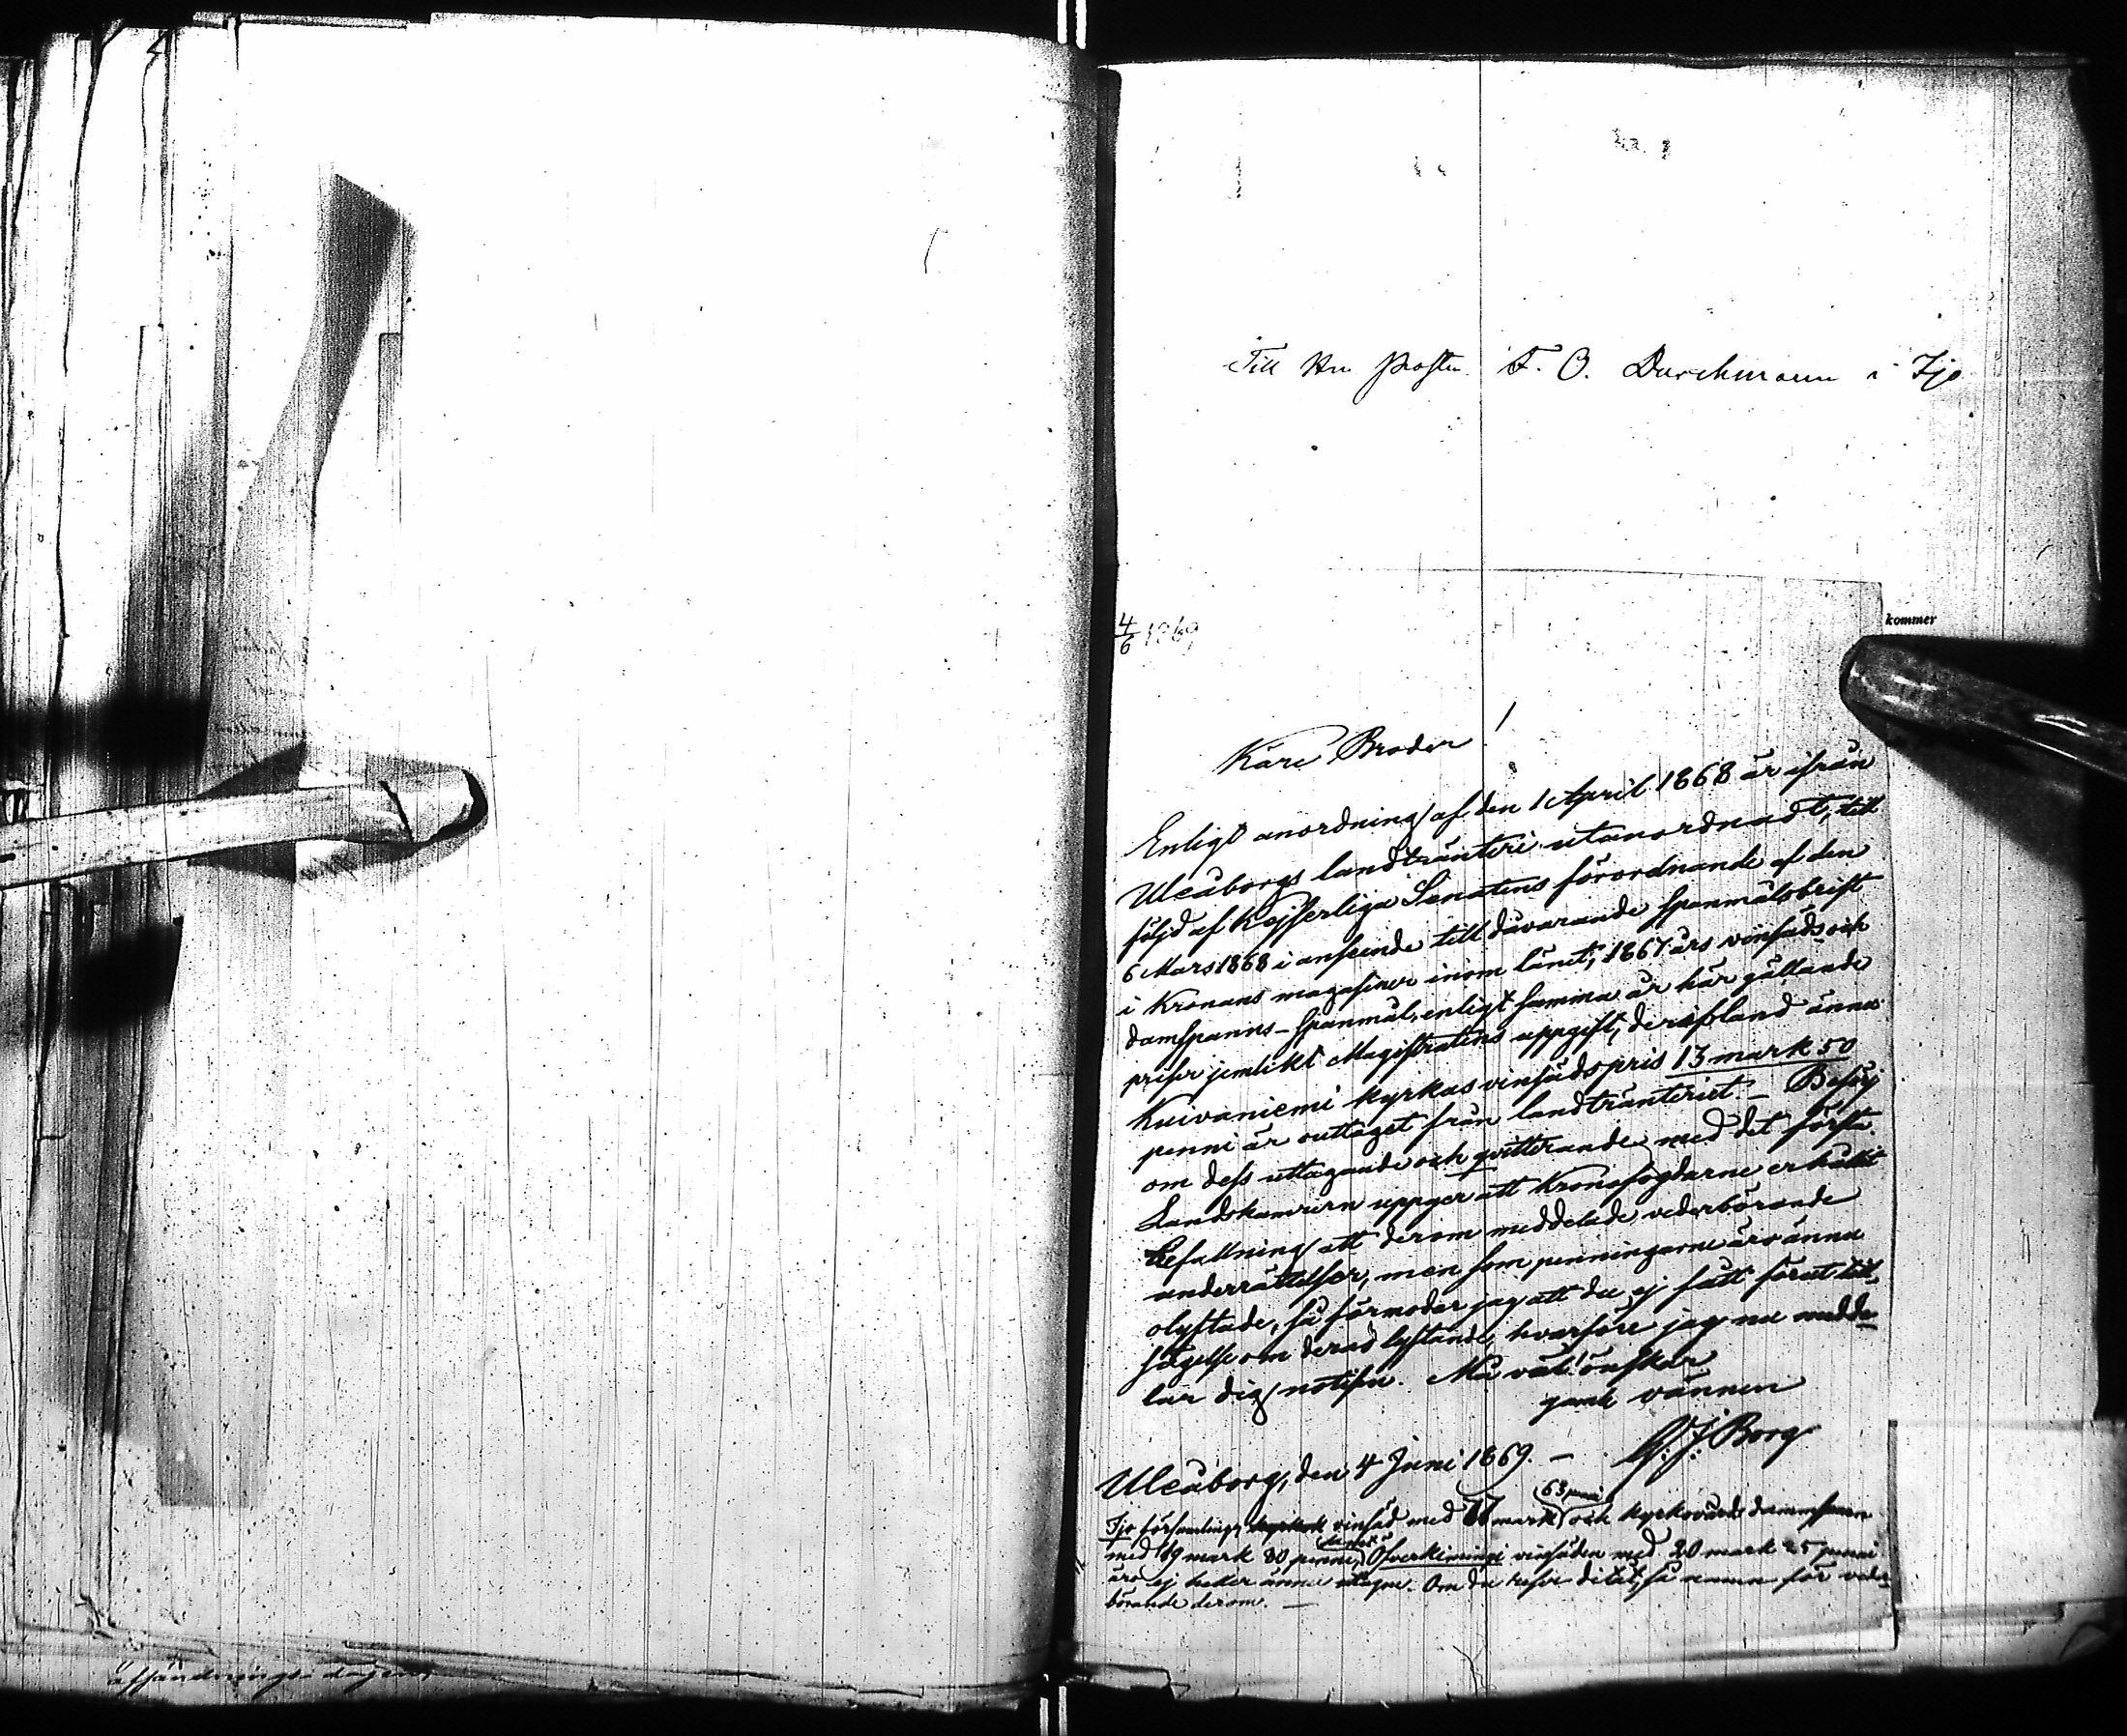 Till Hrr Prosten F. O. Durchmann i Ijo
4/6 1869
kommer
Käre Broder!
Enligt anordning af den 1 April 1868 är ifrån
Uleåborgs landtränteri utanordnadt, till
följd af Kejserliga Senatens förordnande af den
6 Mars 1868 i anseende till dåvarande spanmålsbrist
i Kronans magasiner inom länet, 1867 års vinsäds och
damspanns-spanmål, enligt samma år här gällande
priser jemlikt Magistratens uppgift, deribland ännu
Kuivaniemi kyrkas vinsädspris 13 mark 50
penni är outtaget från landtränteriet. – Besörj
om dess uttagande och qvitterande med det första.
Landskamrern uppger att Kronofogdarne erhållit
befallning att derom meddelade vederbörande
underrättelser, men som penningarne äro ännu
olyftade, så förmodar jag att du ej fått förut till
sägelse om derad lyftande, hvarföre jag nu medde
lar dig notisen. Må väl! önskar
gamle vännen
G. J. Borg
Uleåborg, den 4 Juni 1869. –
Ijo församlings vinsäd med 77 mark 63 penni och kyrkovärds damspann
med 19 mark 80 penni, Ofverkimingi vinsäden med 20 mark 25 penni
äro ej heller ännu uttagne. Om du reser ditåt, så nämn för veder
börande derom. –
afsändnings-dagen,